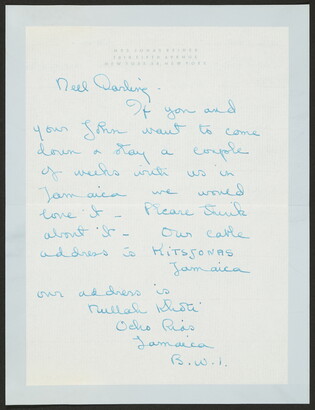 MRS JONAS REINER
NEW YORK 28, NEW YORK
Nell Darling.
If you and
your John want to come
down & stay a couple
of weeks with us in
Jamaica we would
love it – Please think
about it – Our cable
address is KITSJONAS
Jamaica
our address is
Mullah
Ocho Rios
Jamaica
B.W.I.